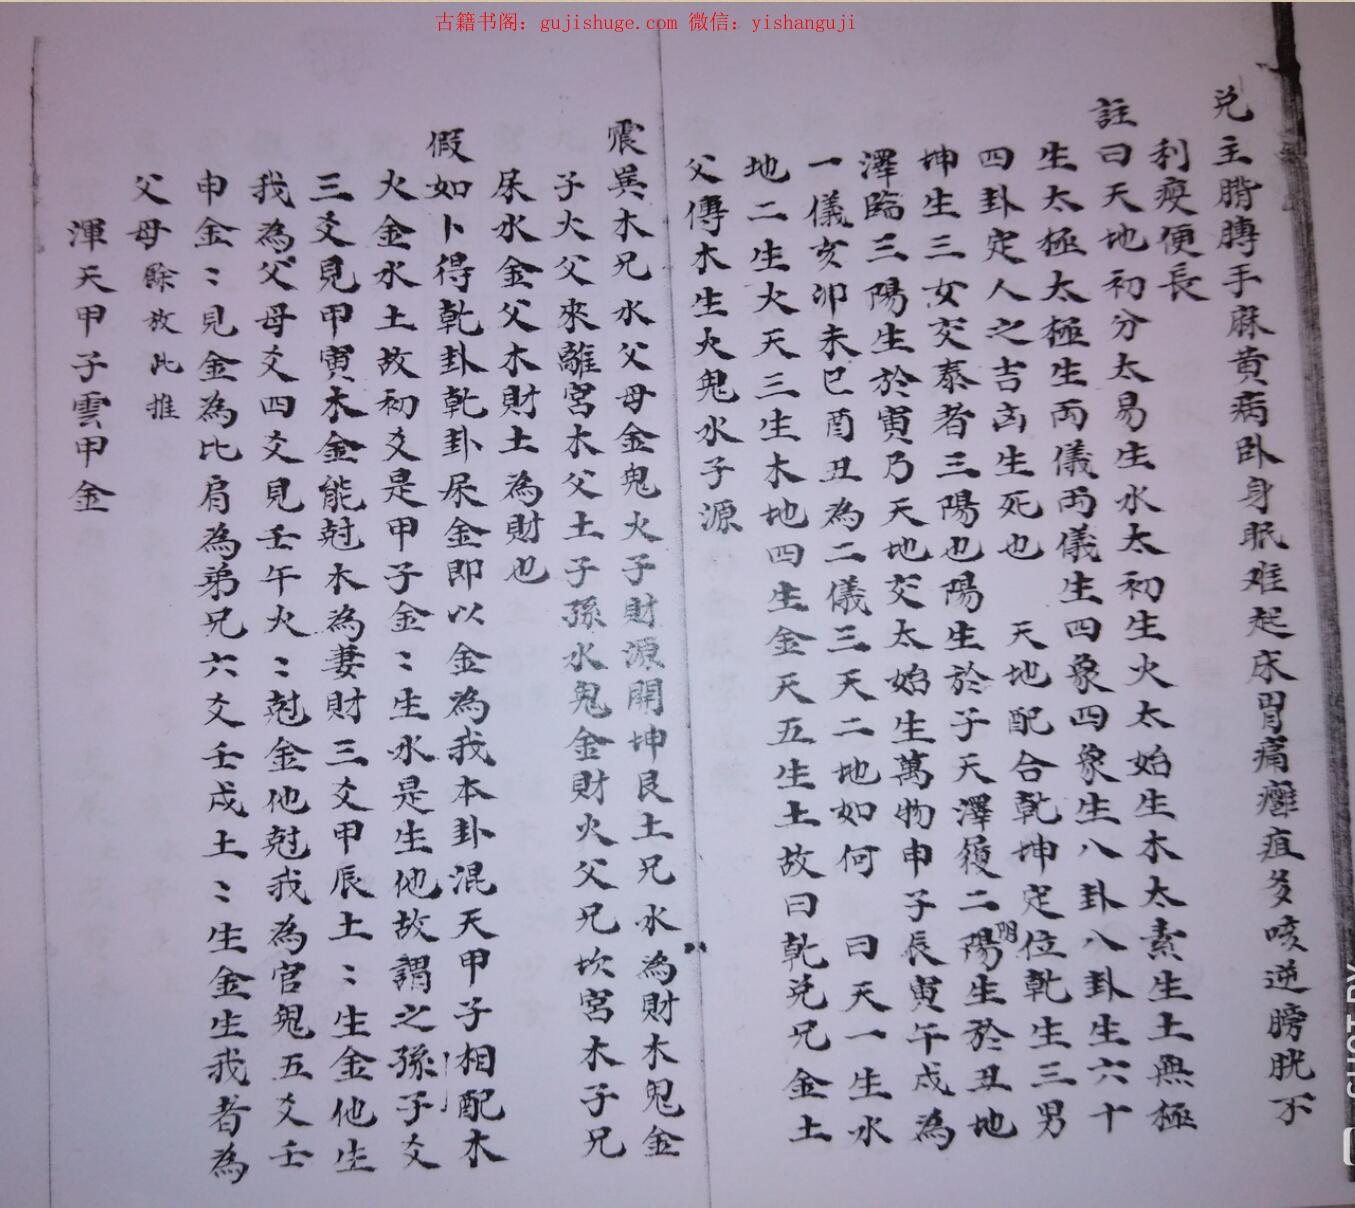 古籍书阁：gujishuge.com 微信：yishanguji
兑主腨膞手麻黄病卧身眠难起床胃痛癰疽多咳逆膀胱不
利痠便長
註曰天地初分太易生水太初生火太始生木太素生土無極
生太極太極生两儀两儀生四象四象生八卦八卦生六十
四卦定人之吉凶生死也 天地配合乾坤定位乾生三男
坤生三女交泰者三陽也陽生於子天澤履二陽生於丑地
明
澤臨三陽生於寅乃天地交太始生萬物申子辰寅午戌為
一儀亥卯未巳酉丑為二儀三天二地如何 曰天一生水
地二生火天三生木地四生金天五生土故曰乾兑兄金土
父傳木生火鬼水子源
震巽木兄水父母金鬼火子財源開坤艮土兄水為財木鬼金
子火父來離宮木父土子孫水鬼金財火父兄坎宮木子兄
屎水金父木財土為財也
假如卜得乾卦乾卦屎金即以金為我本卦混天甲子相配木
火金水土故初爻是甲子金〻生水是生他故謂之孫子爻
三爻見甲寅木金能尅木為妻財三爻甲辰土〻生金他生
我為父母爻四爻見壬午火〻尅金他尅我為官鬼五爻壬
申金〻見金為比肩為弟兄六爻壬戌土〻生金生我者為
父母餘放此推
渾天甲子雲甲金
SHOT BY